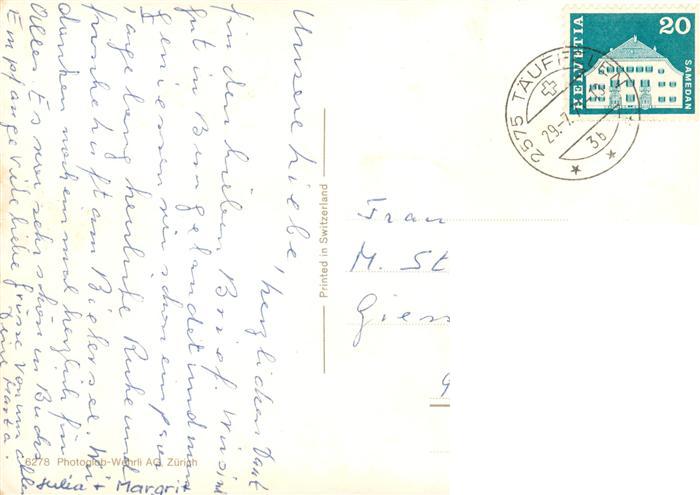 Unsere Liebe, herzlichen Dank
für den lieben Brief. Wir sind
gut in Büng gelandet und nun
geniessen wir schon ein paar
Tage lang herrliche Ruhe und
frische Luft am Bielersee. Wir
danken noch einmal herzlich für
Alles. Es war sehr schön in Buchs
Empfange viele liebe Grüsse von uns allen
Deine Marta.
Julia + Margrit
6278 Photoglob-Wehrli AG, Zürich
Printed in Switzerland
Frau
M. St
Giess
HELVETIA
20
SAMEDAN
2575 TÄUFFELEN
29.-7.
3b